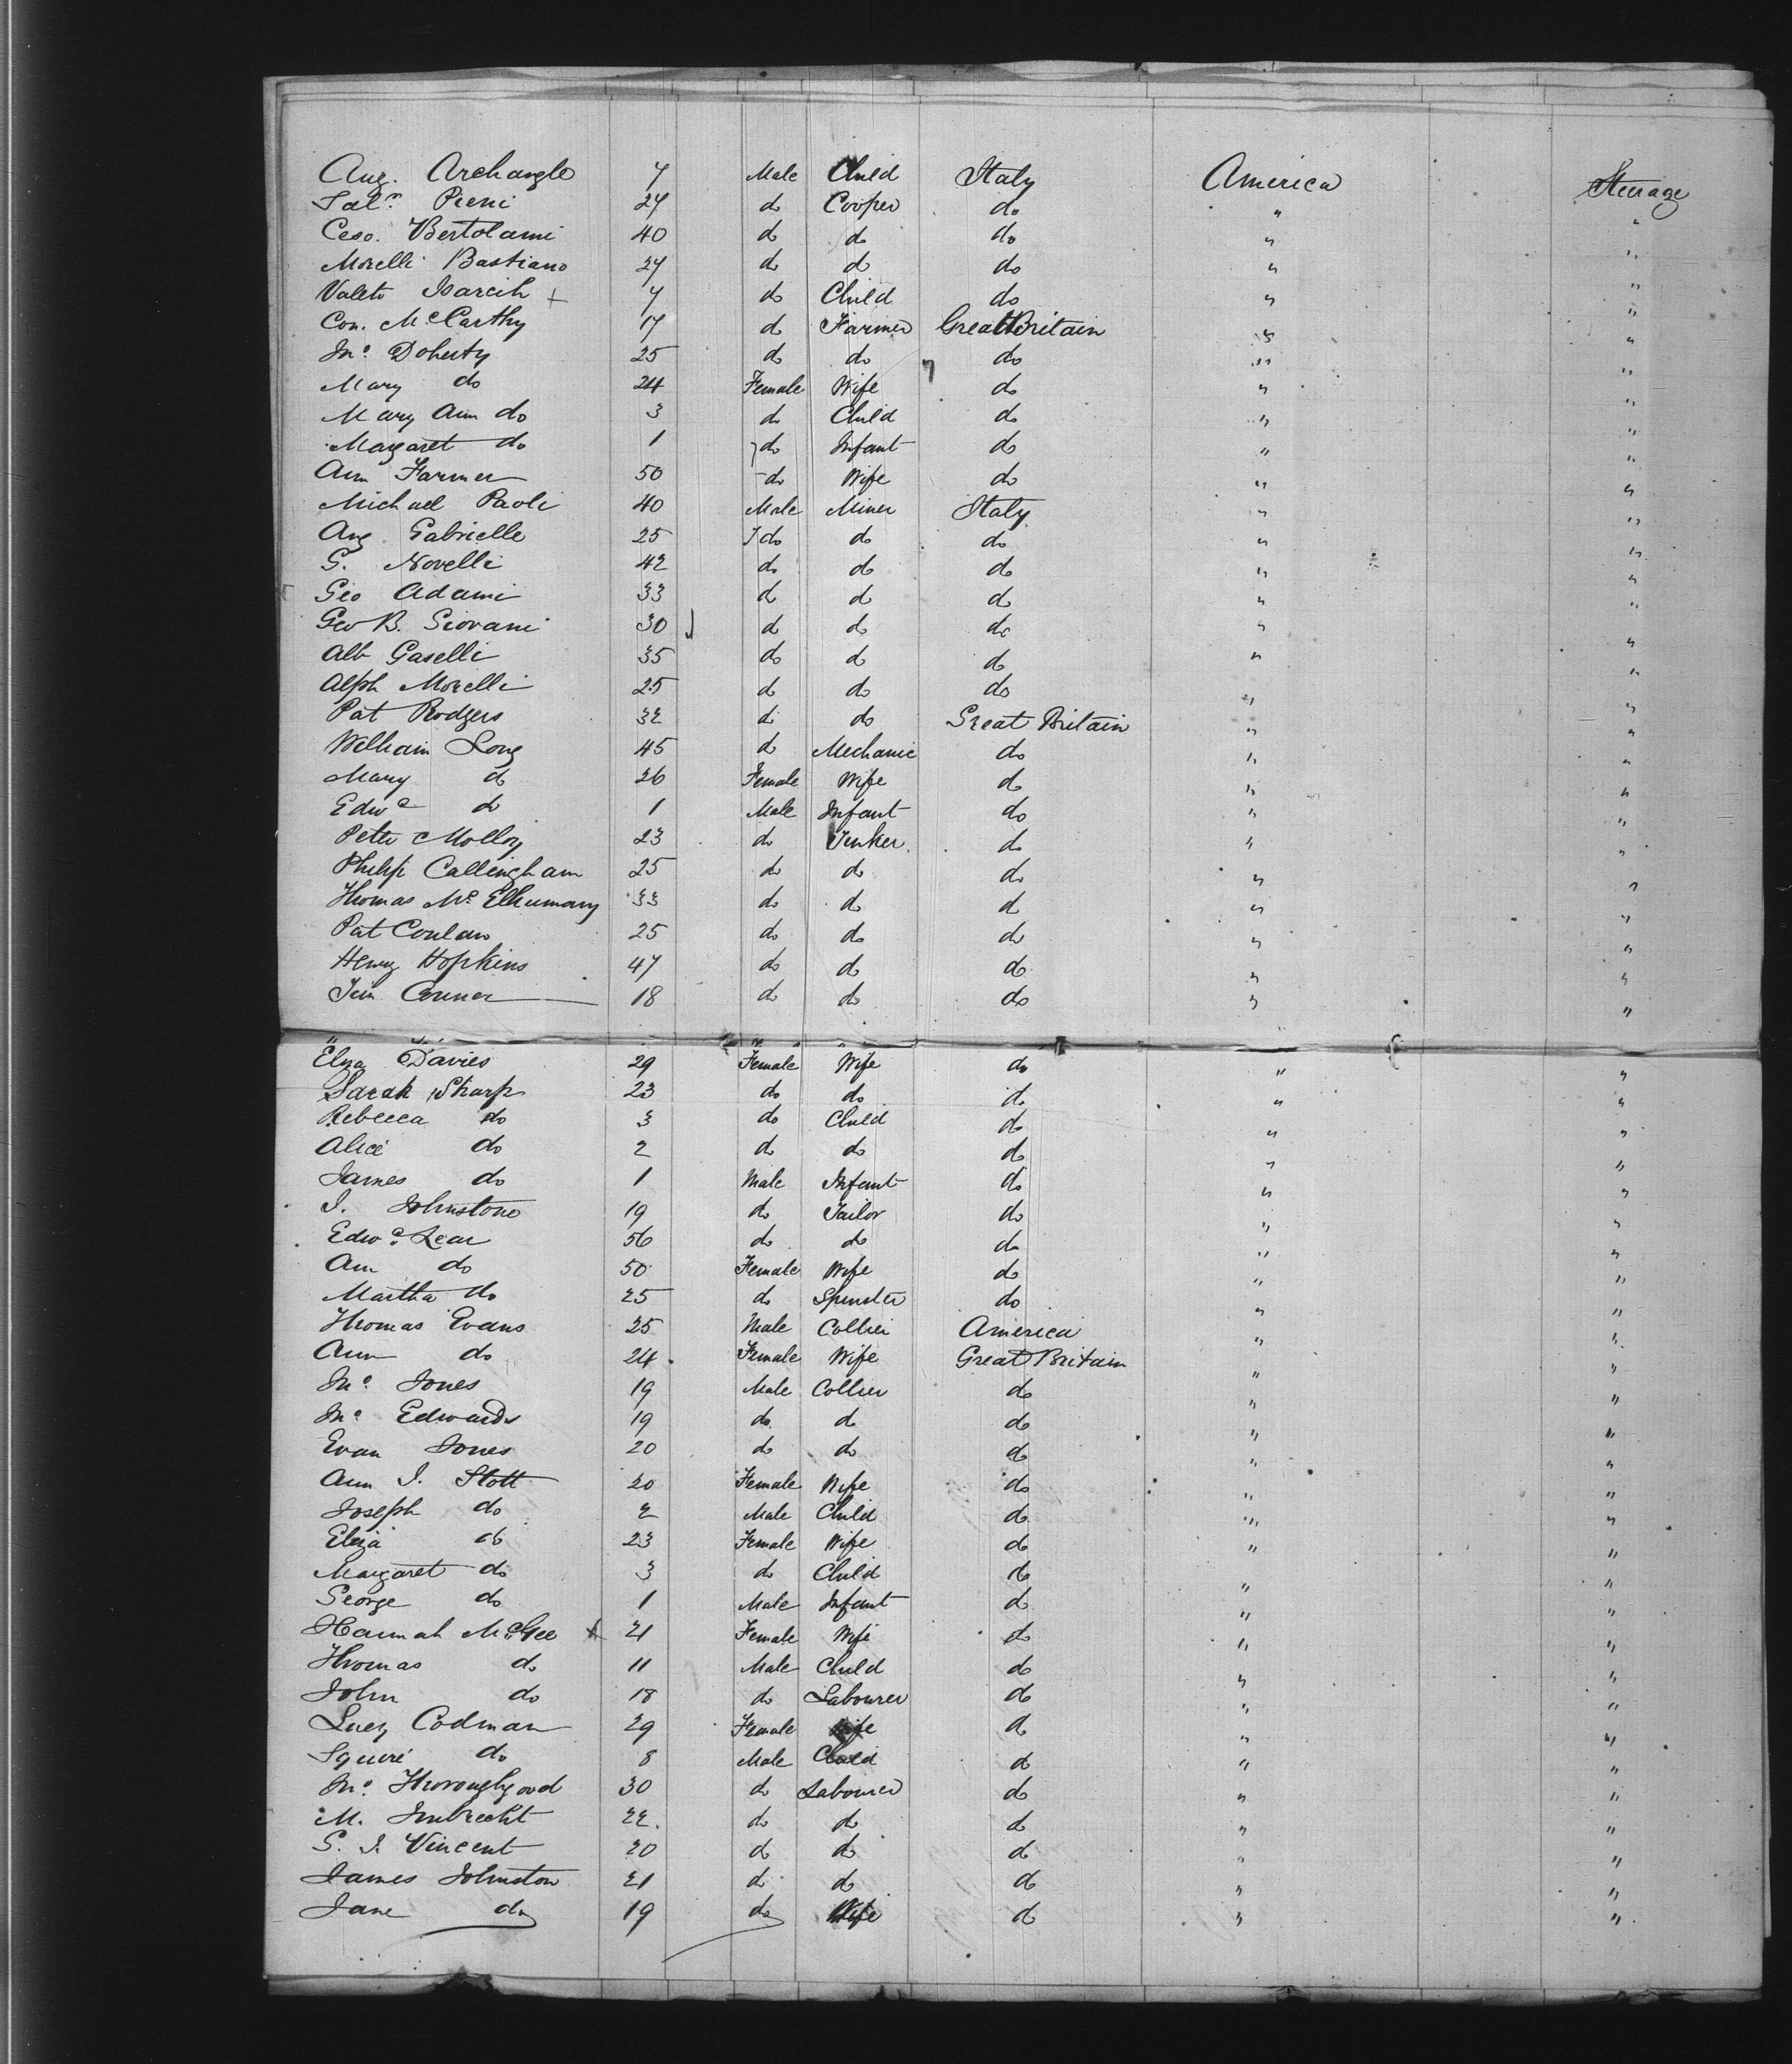 Aug. Archangle 7 Male Child Italy America Steerage
Salr. Pieni 27 do Cooper do " "
Ceso. Bertolami 40 do do do " "
Morelli Bastiano 27 do do do " "
Valeto Isarcih + 7 do Child do " "
Con. McCarthy 17 do Farmer Great Britain " "
Jno. Doherty 25 do do do " "
Mary do 24 Female Wife do " "
Mary Ann do 3 do Child do " "
Margaret do 1 do Infant do " "
Ann Farmer 50 do Wife do " "
Michael Paoli 40 Male Miner Italy " "
Ang Gabrielle 25 do do do " "
G. Novelli 42 do do do " "
Gio Adami 33 do do do " "
Geo B. Giovani 30 do do do " "
Alb Gaselli 35 do do do " "
Alph Morelli 25 do do do " "
Pat Rodgers 32 do do Great Britain " "
William Long 45 do Mechanic do " "
Mary do 26 Female Wife do " "
Edwd do 1 Male Infant do " "
Peter Molloy 23 do Tinker do " "
Philip Callingham 25 do do do " "
Thomas Mc Elhumany 33 do do do " "
Pat Conlan 25 do do do " "
Henry Hopkins 47 do do do " "
Jim Conner 18 do do do " "
Eliza Davies 29 Female Wife do " "
Sarah Sharp 23 do do do " "
Rebecca do 3 do Child do " "
Alice do 2 do do do " "
James do 1 Male Infant do " "
J. Johnstone 19 do Tailor do " "
Edwd. Lear 56 do do do " "
Ann do 50 Female Wife do " "
Martha do 25 do Spinster do " "
Thomas Evans 25 Male Collier America " "
Ann do 24 Female Wife Great Britain " "
Jno. Jones 19 Male Collier do " "
Jno. Edwards 19 do do do " "
Evan Jones 20 do do do " "
Ann J. Stott 20 Female Wife do " "
Joseph do 2 Male Child do " "
Eliza do 23 Female Wife do " "
Margaret do 3 do Child do " "
George do 1 Male Infant do " "
Hannah McGee 21 Female Wife do " "
Thomas do 11 Male Child do " "
John do 18 do Labourer do " "
Lucy Codman 29 Female Wife do " "
Squire do 8 Male Child do " "
Jno. Thoroughgood 30 do Labourer do " "
M. Imbrecht 22 do do do " "
G. J. Vincent 20 do do do " "
James Johnston 21 do do do " "
Jane do 19 do Wife do " "